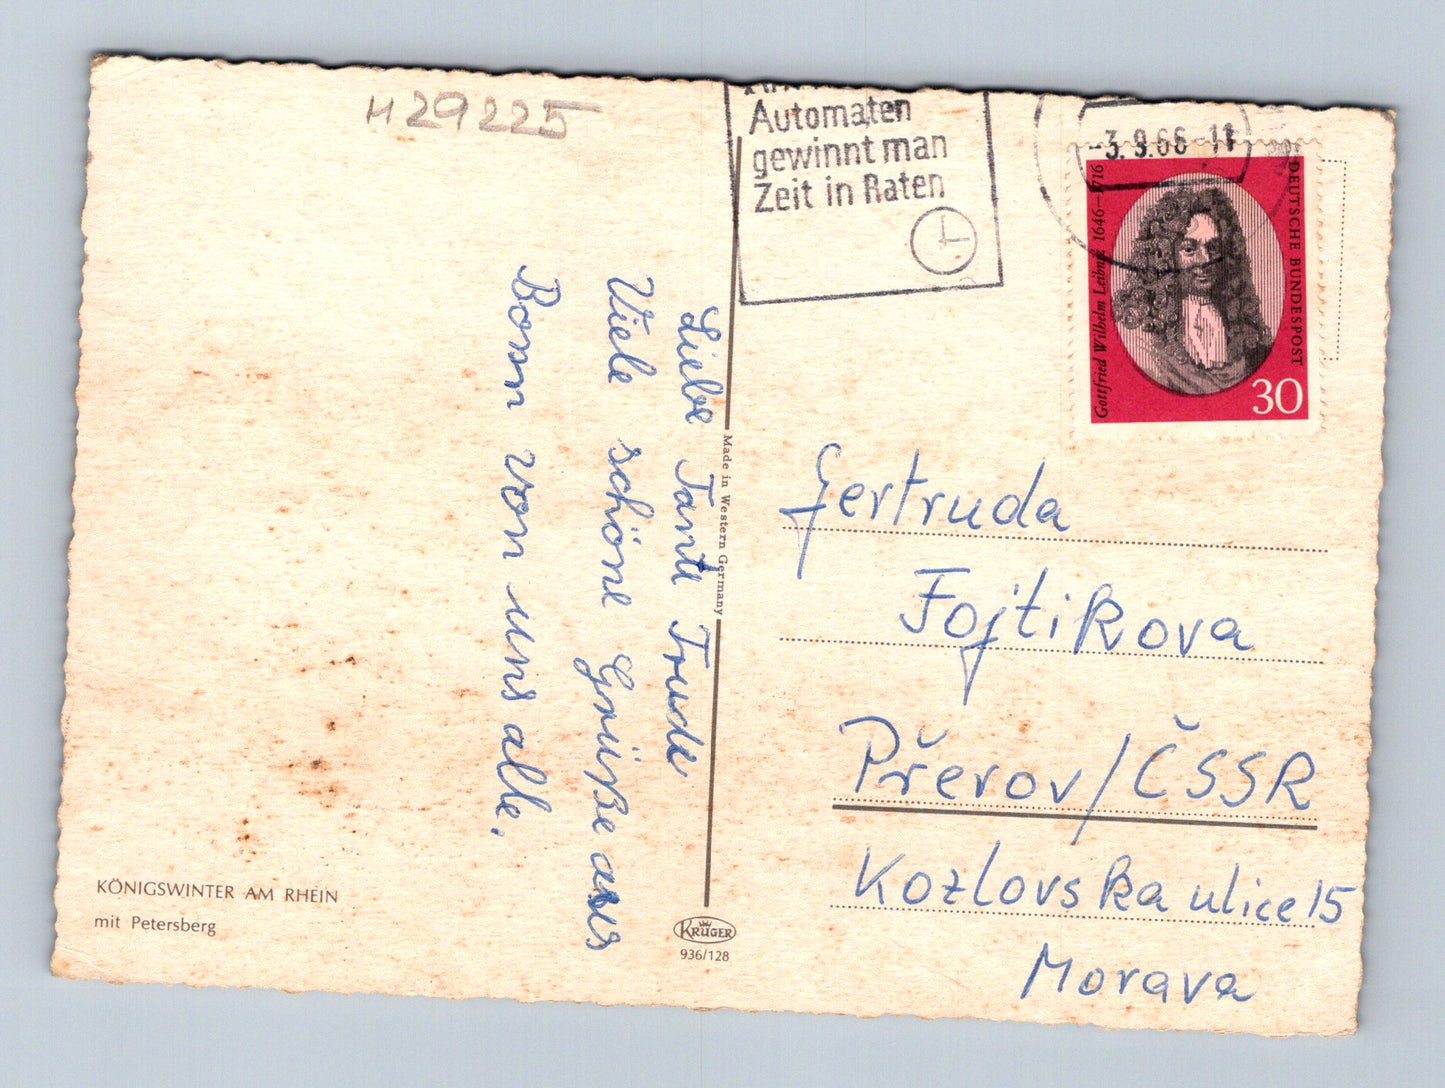 H 29225
Automaten
gewinnt man
Zeit in Raten
-3.9.66-11
Gottfried Wilhelm Leibniz 1646–1716
DEUTSCHE BUNDESPOST
30
Liebe Tante Trude
Viele schöne Grüße aus
Bonn von uns alle.
Made in Western Germany
Gertruda
Fojtikova
Přerov/ČSSR
Kozlovska ulice 15
Morava
KÖNIGSWINTER AM RHEIN
mit Petersberg
KRÜGER
936/128